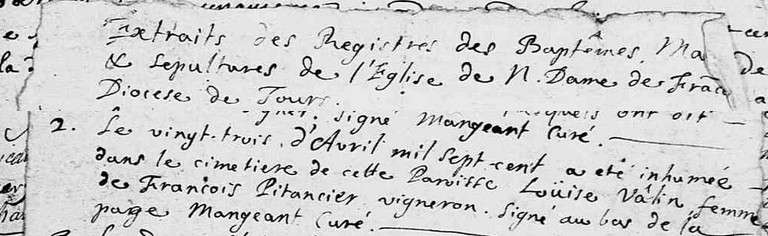 Extraits des Registres des Baptêmes, Ma
& Sepultures de l'Eglise de N. Dame de Franc
Diocese de Tours.
signé Mangeant Curé.
2. Le vingt-trois d'Avril mil sept-cent a eté inhumée
dans le cimetiere de cette Paroisse Loüise Vâlin femme
de François Pitancier vigneron. Signé au bas de la
page Mangeant Curé.